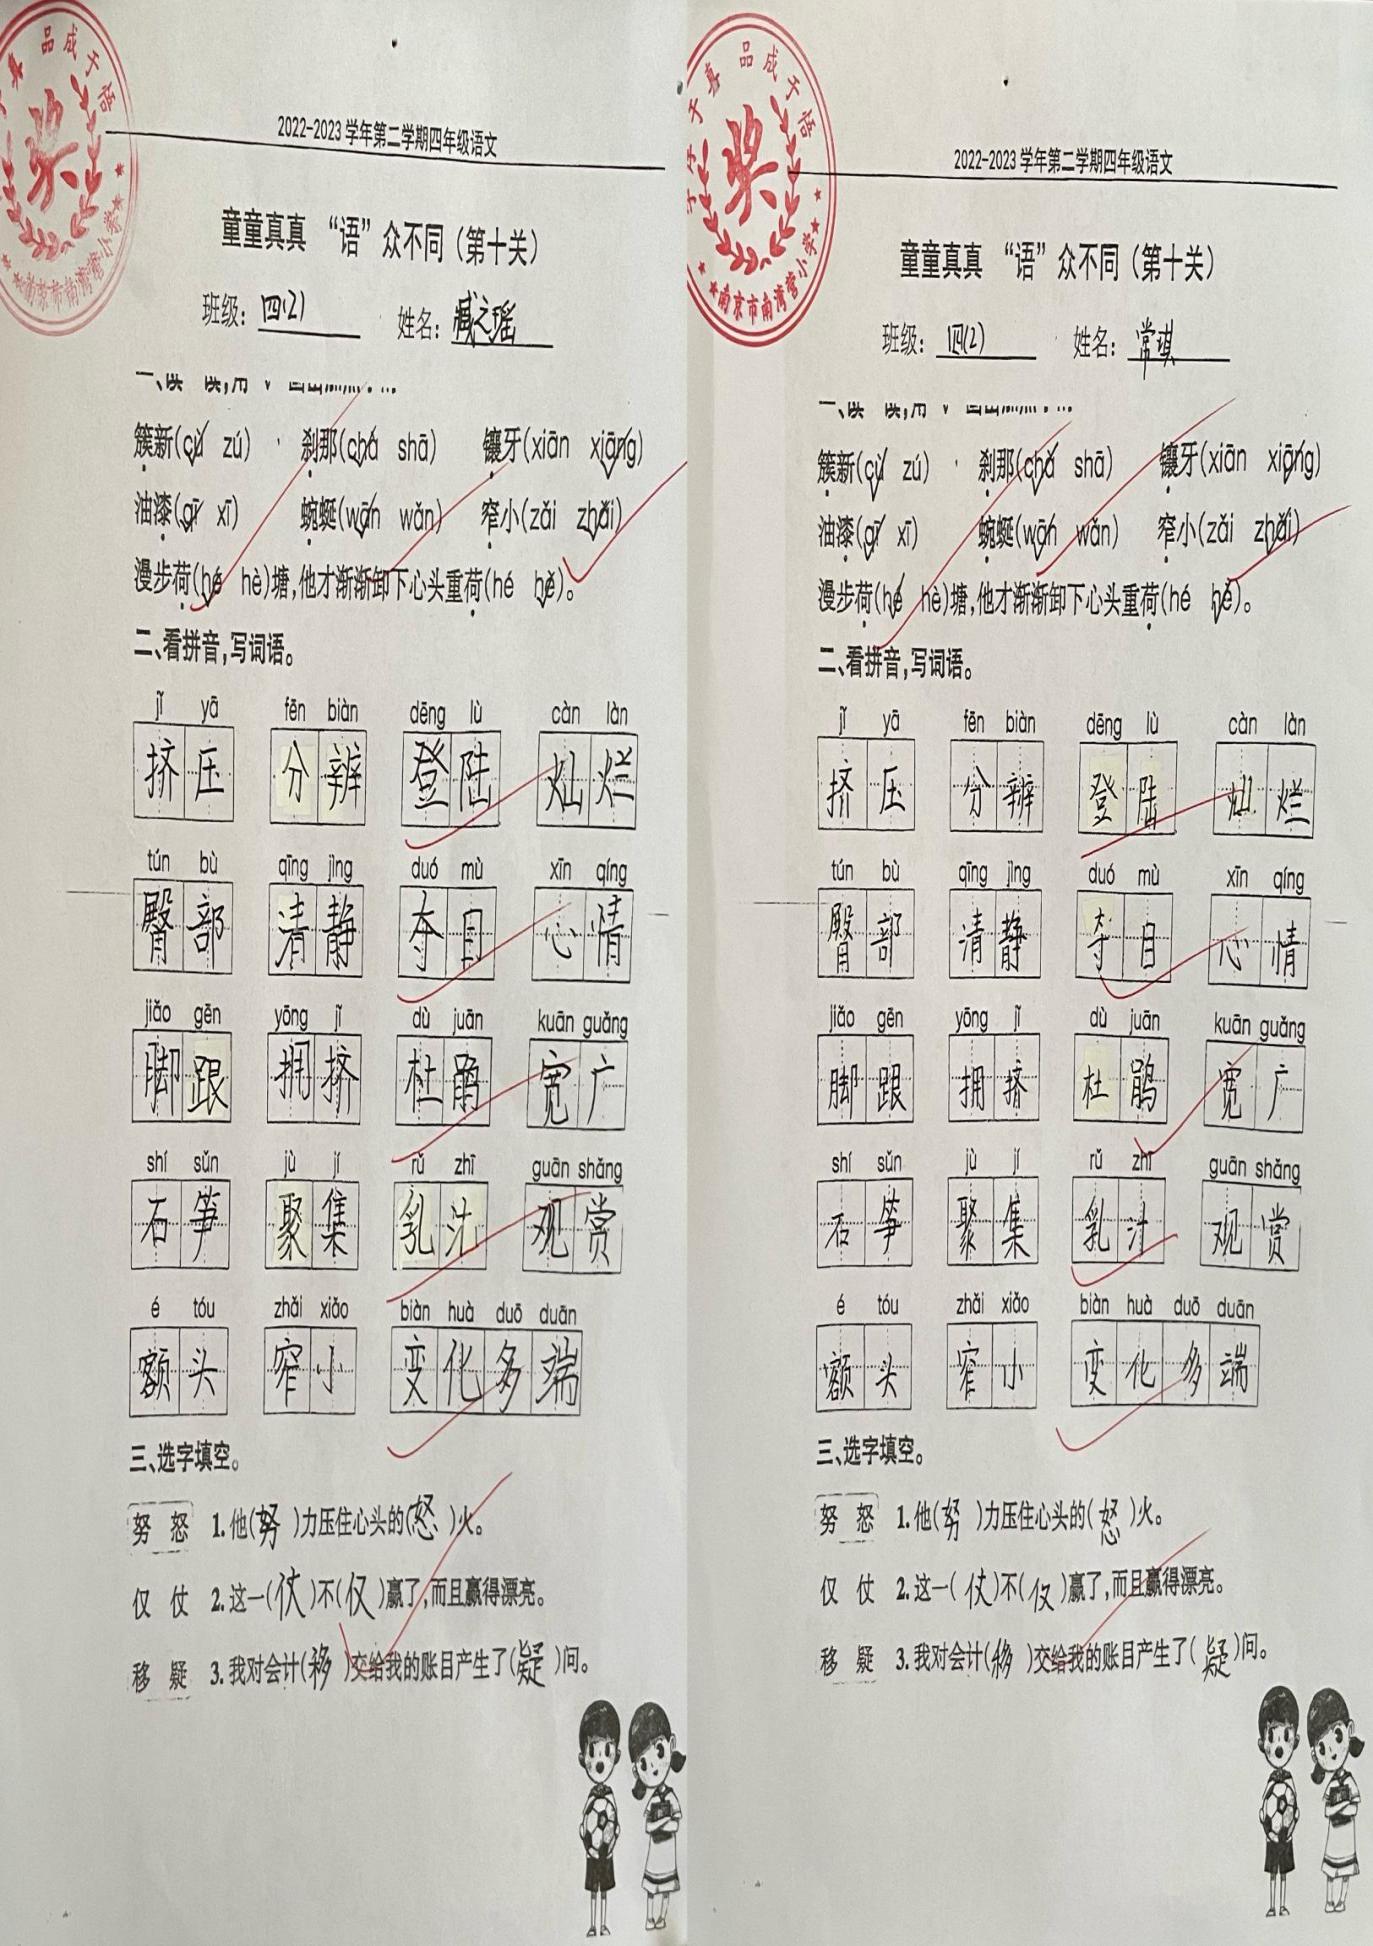 品成于悟
奖
2022-2023学年第二学期四年级语文
童童真真 “语”众不同(第十关)
班级: 四(2) 姓名: 臧之瑶
簇新(cù zú) 刹那(chà shā) 镶牙(xiān xiāng)
油漆(qī xī) 蜿蜒(wān wǎn) 窄小(zǎi zhǎi)
漫步荷(hé hè)塘,他才渐渐卸下心头重荷(hé hè)。
二、看拼音,写词语。
jǐ yā fēn biàn dēng lù càn làn
挤压 分辨 登陆 灿烂
tún bù qīng jìng duó mù xīn qíng
臀部 清静 夺目 心情
jiǎo gēn yōng jǐ dù juān kuān guǎng
脚跟 拥挤 杜鹃 宽广
shí sǔn jù jí rǔ zhī guān shǎng
石笋 聚集 乳汁 观赏
é tóu zhǎi xiǎo biàn huà duō duān
额头 窄小 变化多端
三、选字填空。
努 怒 1.他(努)力压住心头的(怒)火。
仅 仗 2.这一(仗)不(仅)赢了,而且赢得漂亮。
移 疑 3.我对会计(移)交给我的账目产生了(疑)问。
品成于悟
奖
南京市南湾营小学
2022-2023学年第二学期四年级语文
童童真真 “语”众不同(第十关)
班级: 四(2) 姓名: 常琪
簇新(cù zú) 刹那(chà shā) 镶牙(xiān xiāng)
油漆(qī xī) 蜿蜒(wān wǎn) 窄小(zǎi zhǎi)
漫步荷(hé hè)塘,他才渐渐卸下心头重荷(hé hè)。
二、看拼音,写词语。
jǐ yā fēn biàn dēng lù càn làn
挤压 分辨 登陆 灿烂
tún bù qīng jìng duó mù xīn qíng
臀部 清静 夺目 心情
jiǎo gēn yōng jǐ dù juān kuān guǎng
脚跟 拥挤 杜鹃 宽广
shí sǔn jù jí rǔ zhī guān shǎng
石笋 聚集 乳汁 观赏
é tóu zhǎi xiǎo biàn huà duō duān
额头 窄小 变化多端
三、选字填空。
努 怒 1.他(努)力压住心头的(怒)火。
仅 仗 2.这一(仗)不(仅)赢了,而且赢得漂亮。
移 疑 3.我对会计(移)交给我的账目产生了(疑)问。